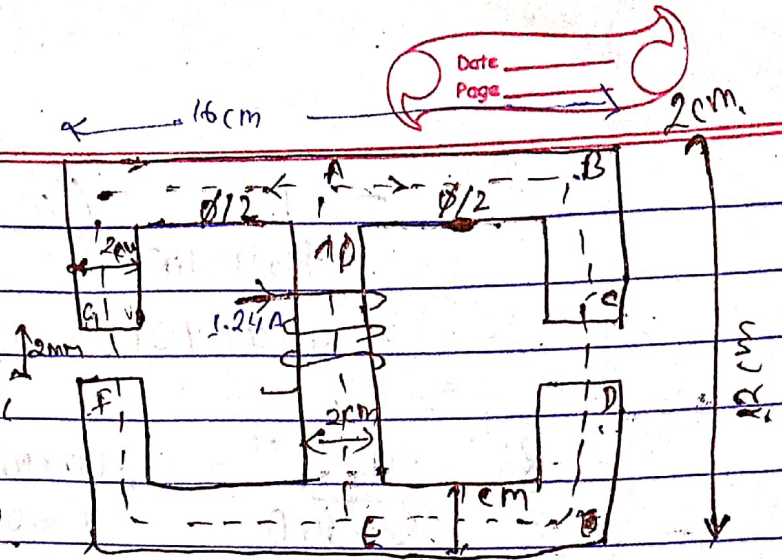 Date
Page
16cm
2cm.
A
B
Ø/2
Ø/2
2cm
1.24A
C
2mm
F
2cm
D
cm
E